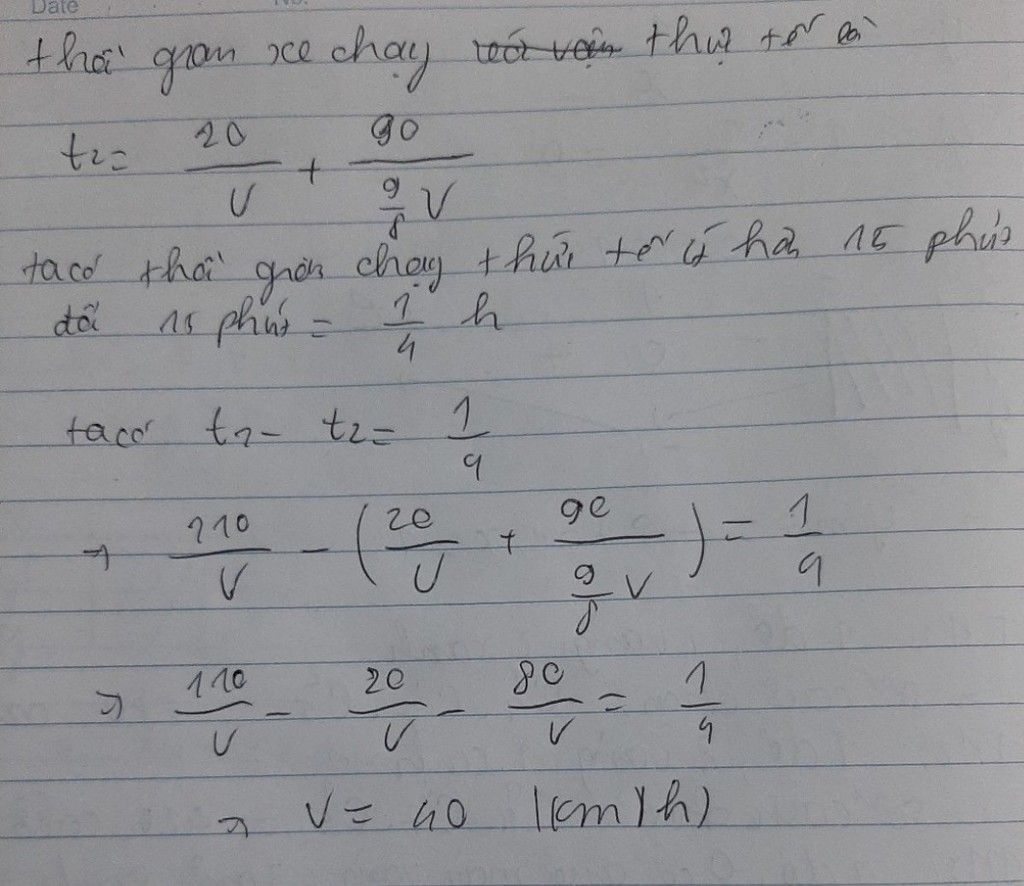 Date No.
thời gian xe chạy thực tế là
t2 = 20/V + 90/(9/8 V)
ta có thời gian chạy thực tế ít hơn 15 phút
đổi 15 phút = 1/4 h
ta có t1 - t2 = 1/4
→ 110/V - (20/V + 90/(9/8 V)) = 1/4
→ 110/V - 20/V - 80/V = 1/4
→ V = 40 (km/h)